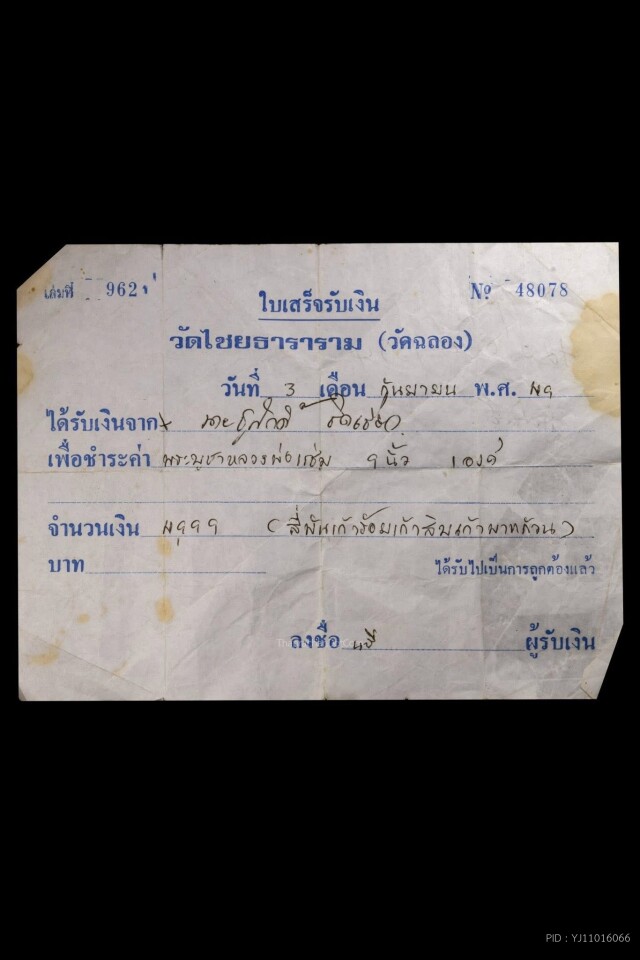 เล่มที่ 962 Nº 48078
ใบเสร็จรับเงิน
วัดไชยธาราราม (วัดฉลอง)
วันที่ 3 เดือน กันยายน พ.ศ. ๔๑
ได้รับเงินจาก นาย
เพื่อชำระค่า พระบูชาหลวงพ่อแช่ม ๅ นิ้ว 1 องค์
จำนวนเงิน ๔๙๙๙ (สี่พันเก้าร้อยเก้าสิบเก้าบาทถ้วน)
บาท ได้รับไปเป็นการถูกต้องแล้ว
ลงชื่อ ผู้รับเงิน
PID : YJ11016066